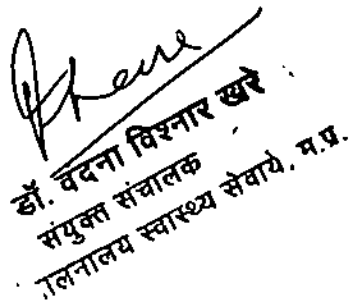 Khare
डॉ. वंदना विश्नार खरे
संयुक्त संचालक
लनालय स्वास्थ्य सेवाये, म.प्र.